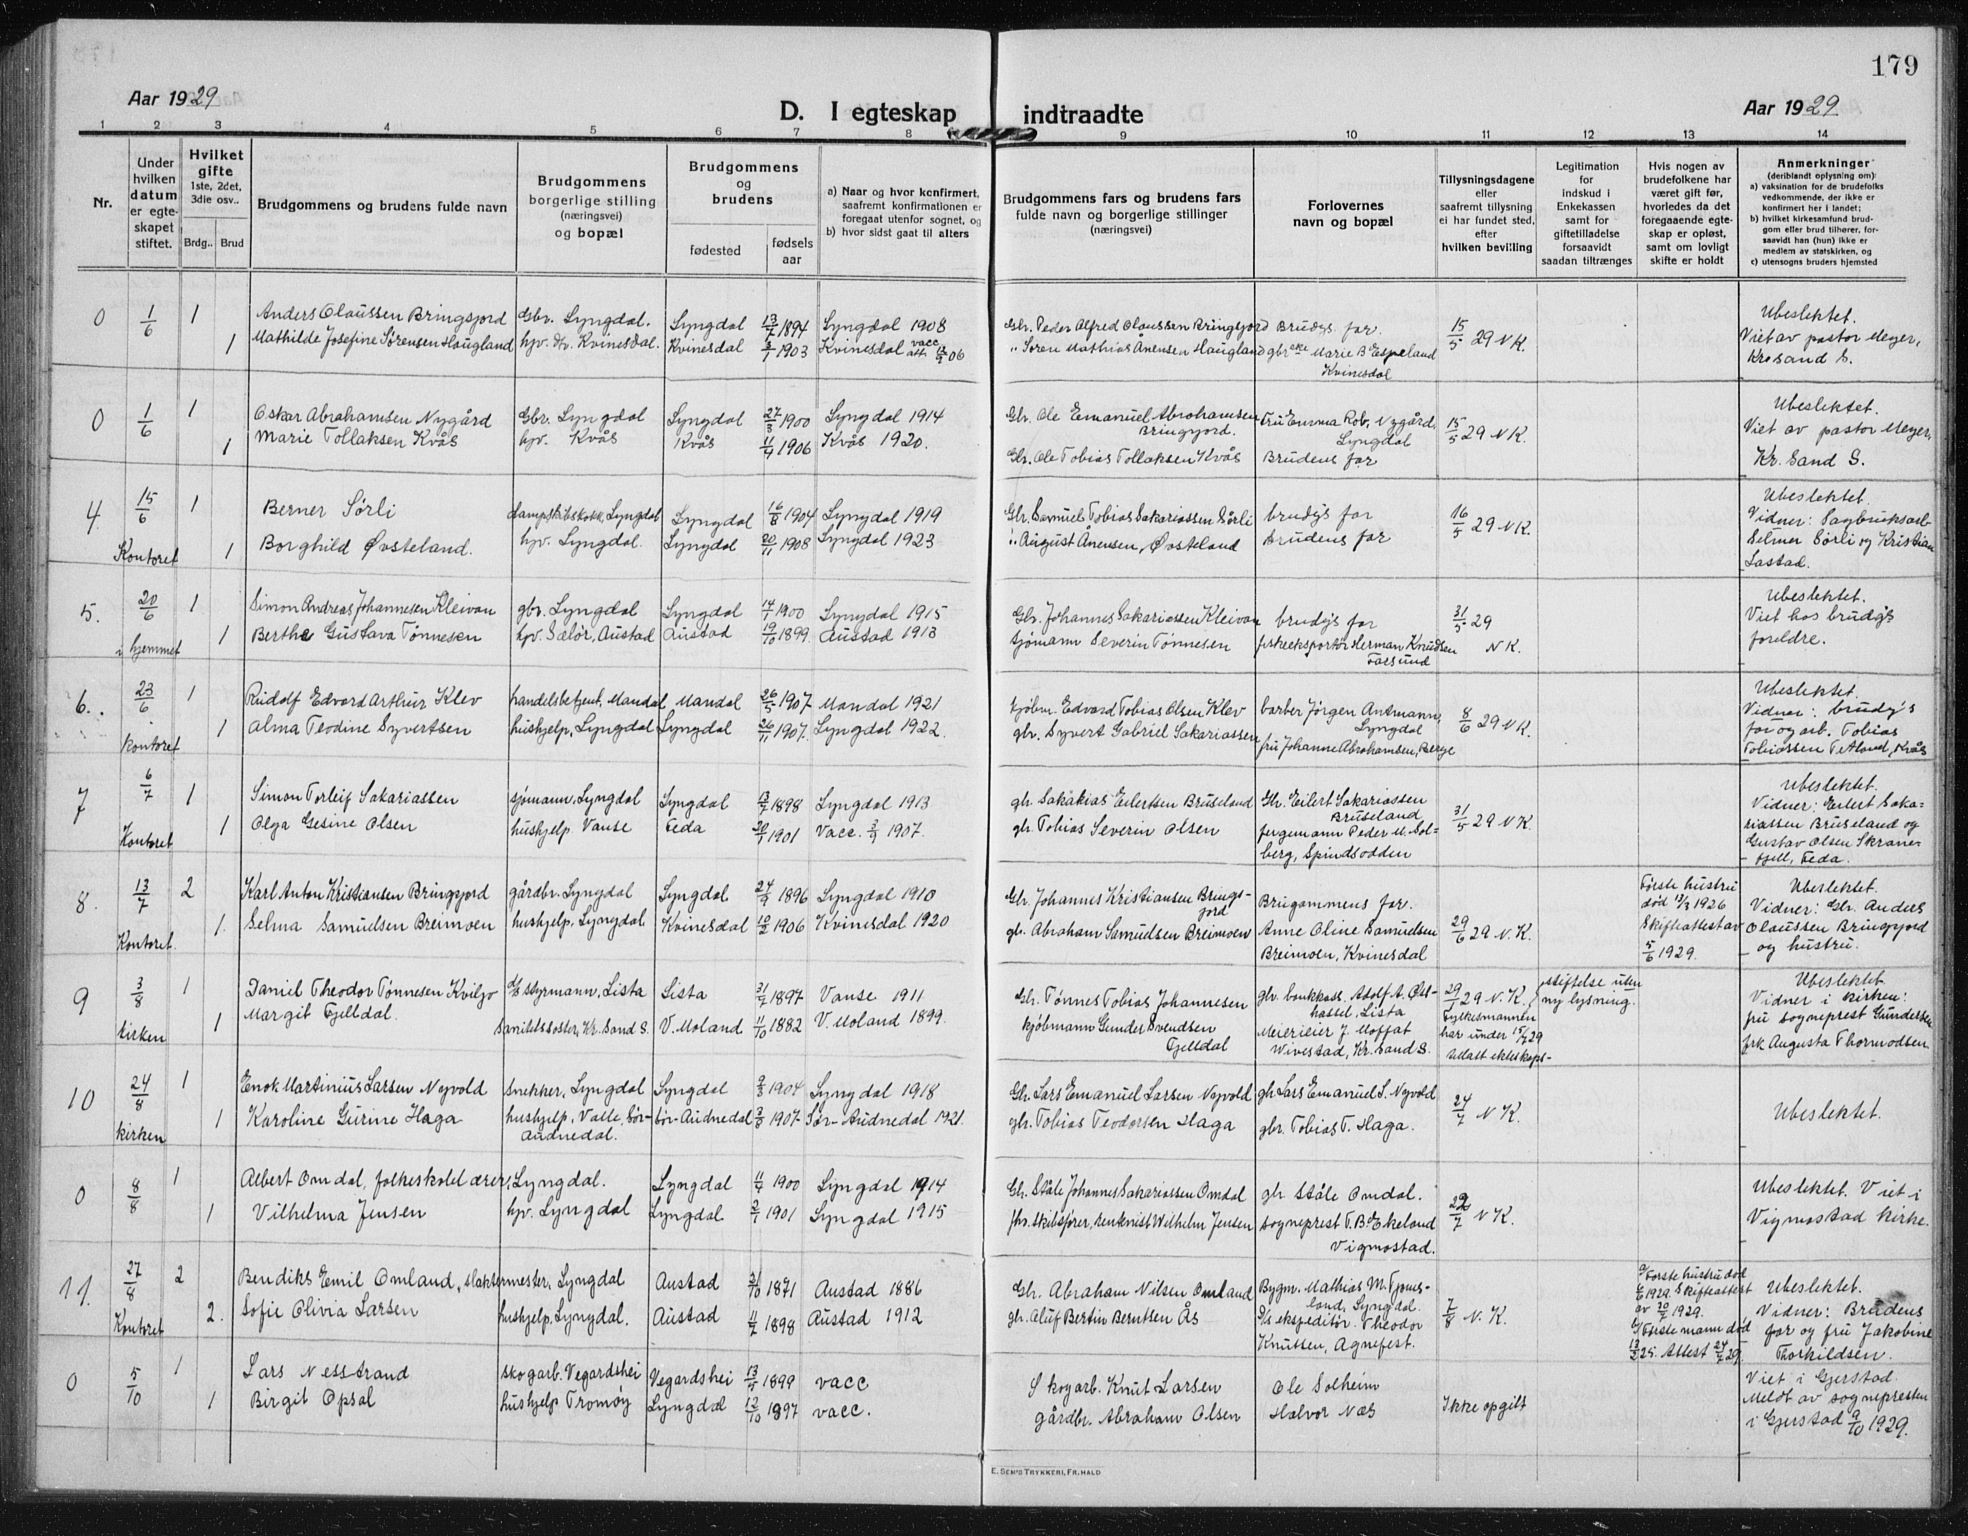 179
Aar 1929
D. I egteskap indtraadte
Aar 1929
1 2 3 4 5 6 7 8 9 10 11 12 13 14
Nr.
Under hvilken datum er egteskapet stiftet.
Hvilket gifte 1ste, 2det, 3die osv..
Brdg.. Brud
Brudgommens og brudens fulde navn
Brudgommens borgerlige stilling (næringsvei) og bopæl
Brudgommens og brudens
fødested
fødsels aar
a) Naar og hvor konfirmert, saafremt konfirmationen er foregaat utenfor sognet, og
b) hvor sidst gaat til alters
Brudgommens fars og brudens fars fulde navn og borgerlige stillinger (næringsvei)
Forlovernes navn og bopæl
Tillysningsdagene eller saafremt tillysning ei har fundet sted, efter hvilken bevilling
Legitimation for indskud i Enkekassen samt for giftetilladelse forsaavidt saadan tiltrænges
Hvis nogen av brudefolkene har været gift før, hvorledes da det foregaaende egteskap er opløst, samt om lovligt skifte er holdt
Anmerkninger (deriblandt oplysning om):
a) vaksination for de brudefolks vedkommende, der ikke er konfirmert her i landet;
b) hvilket kirkesamfund brudgom eller brud tilhører, forsaavidt han (hun) ikke er medlem av statskirken, og
c) utensogns bruders hjemsted
0 1/6 1 Anders Olaussen Bringsjord Gbr. Lyngdal. Lyngdal 13/7 1894 Lyngdal 1908 Gbr. Peder Alfred Olaussen Bringsjord Brudgs far. 15/5 29 N.K. Ubeslektet.
1 Mathilde Josefine Sørensen Haugland hjv. Kvinesdal. Kvinesdal 1903 Kvinesdal vacc. 06 " Søren Mathias Anensen Haugland gbr Marie B. Espeland Kvinesdal Viet av pastor Meyer, Kr.sand S.
0 1/6 1 Oskar Abrahamsen Nygård Gbr. Lyngdal Lyngdal 27/3 1900 Lyngdal 1914 Gbr. Ole Emanuel Abrahamsen Bringsjord. Fru Emma Rob. Nygård, Lyngdal 15/5 29 N.K. Ubeslektet.
1 Marie Tollaksen Kvås hjv. Kvås Kvås 11/4 1906 Kvås 1920. Gbr. Ole Tobias Tollaksen Kvås Brudens far Viet av pastor Meyer, Kr. Sand S.
4 15/6 1 Berner Sørli dampskibskokk, Lyngdal Lyngdal 16/8 1904 Lyngdal 1919 Gbr. Samuel Tobias Sakariassen Sörli brudgs far 16/5 29 N.K. Ubeslektet.
Kontoret 1 Borghild Øvsteland. hjv. Lyngdal. Lyngdal 20/11 1908 Lyngdal 1923 " August Anensen, Øvsteland brudens far Vidner: Sagbruksarb. Selmer Sørli og Kristian Lastad.
5. 20/6 1 Simon Andreas Johannesen Kleivan gbr. Lyngdal Lyngdal 14/7 1900 Lyngdal 1915 Gbr. Johannes Sakariassen Kleivan brudgs far 31/5 29 N.K. Ubeslektet.
i hjemmet 1 Berthe Gustava Tønnesen hjv. Sælör, Austad Austad 19/10 1899. Austad 1913 sjømann Severin Tønnesen fiskeeksportør Herman Knudsen Farsund Viet hos brudgs foreldre.
6. 23/6 1 Rudolf Edvard Arthur Klev handelsbetjent, Mandal Mandal 26/5 1907 Mandal 1921 kjøbm. Edvard Tobias Olsen Klev barber Jørgen Antmann, Lyngdal 8/6 29 N.K. Ubeslektet.
kontoret 1 Alma Teodine Syvertsen hushjelp, Lyngdal Lyngdal 26/11 1907. Lyngdal 1922. gbr. Syvert Gabriel Sakariassen fru Johanne Abrahamsen, Berge Vidner: brudgs far og arb. Tobias Tobiassen Tetland, Kvås
7 6/7 1 Simon Torleif Sakariassen sjømann, Lyngdal Lyngdal 13/7 1898 Lyngdal 1913 gb. Sakakias Eilertsen Bruseland Gbr. Eilert Sakariassen Bruseland 31/5 29 N.K. Ubeslektet.
Kontoret 1 Olga Gesine Olsen hushjelp. Vanse Feda 1901 Vacc. 3/9 1907. gb. Tobias Severin Olsen fergemann Peder M. Solberg, Spindsodden Vidner: Eilert Sakariassen Bruseland og Gustav Olsen Skranefjell, Feda.
8. 13/7 2 Karl Anton Kristiansen Bringsjord gårdbr. Lyngdal Lyngdal 24/9 1896 Lyngdal 1910 Gbr. Johannes Kristiansen Bringsjord Brugommens far. 29/6 29 N.K. Første hustru død 1926 Skifteattest av 5/6 1929. Ubeslektet.
Kontoret. 1. Selma Samuelsen Breimoen hushjelp. Lyngdal. Kvinesdal 10/2 1906 Kvinesdal 1920 gb. Abraham Samuelsen Breimoen Anne Oline Samuelsen Breimoen, Kvinesdal Vidner: Gbr. Anders Olaussen Bringsjord og hustru.
9 3/8 1 Daniel Theodor Tønnesen Kviljo styrmann, Lista Lista 31/7 1897 Vanse 1911 Gbr. Tønnes Tobias Johannesen gbr. bankkass. Adolf A. Østhassel, Lista 29 N.K. Fylkesmannen har under 15/7 29 tillatt ekteskapsstiftelse uten ny lysning. Ubeslektet.
kirken 1 Margit Fjelldal. Sanitetssøster, Kr. Sand S. V. Moland 11/10 1882 V. Moland 1899. kjøbmann Gunder Svendsen Fjelldal Meierieier J. Moffat Wivestad, Kr. Sand S. Vidner i kirken: fru sogneprest Gundersen frk Augusta Thormodsen.
10 24/8 1 Enok Martinius Larsen Nyvold snekker, Lyngdal Lyngdal 1904 Lyngdal 1918 Gbr. Lars Emanuel Larsen Nyvold gb Lars Emanuel L. Nyvold 24/7 N.K. Ubeslektet.
kirken 1 Karoline Gurine Haga hushjelp, Valle Sør-Audnedal. Sør-Audnedal 1907 Sør-Audnedal 1921. gbr. Tobias Teodorsen Haga gbr. Tobias T. Haga.
0 8/8 1 Albert Omdal, folkeskolelærer, Lyngdal. Lyngdal 11/4 1900 Lyngdal 1914 Gbr. Ståle Johannes Sakariassen Omdal gb. Ståle Omdal. 22/7 N.K. Ubeslektet. Viet i
1 Vilhelma Jensen hjv. Lyngdal Lyngdal 1901 Lyngdal 1915 fhv. skibsfører, renknist Wilhelm Jensen sogneprest T. B. Ekeland Vigmostad. Vigmostad kirke.
11. 27/8 2 Bendiks Emil Omland, slaktermester, Lyngdal Austad 1871 Austad 1886 Gbr. Abraham Nilsen Omland Bygm. Mathias M. Tjomsland, Lyngdal. 7/8 N.K. a/ Første hustru død 1929. Skifteattest av 20/7 1929. Ubeslektet.
Kontoret 2. Sofie Olivia Larsen hushjelp, Lyngdal. Austad 11/7 1898 Austad 1912 gb. Aluf Bertin Berntsen Ås D/s ekspeditør Theodor Knutsen, Agnefest. b/ Første mann død 25. Attest 24/7 29. Vidner: Brudens far og fru Jakobine Thorkildsen.
0 5/10 1 Lars Nesstrand skogarb. Vegardshei Vegardshei 13/5 1899 vacc Skogarb. Knut Larsen Ole Solheim Ikke opgitt Viet i Gjerstad.
1 Birgit Opsal hushjelp Tromøy Lyngdal 12/10 1897 vacc. gårdbr. Abraham Olsen Halvor Næs Meldt av sognepresten i Gjerstad 9/10 1929.
E. SEM'S TRYKKERI, FR.HALD